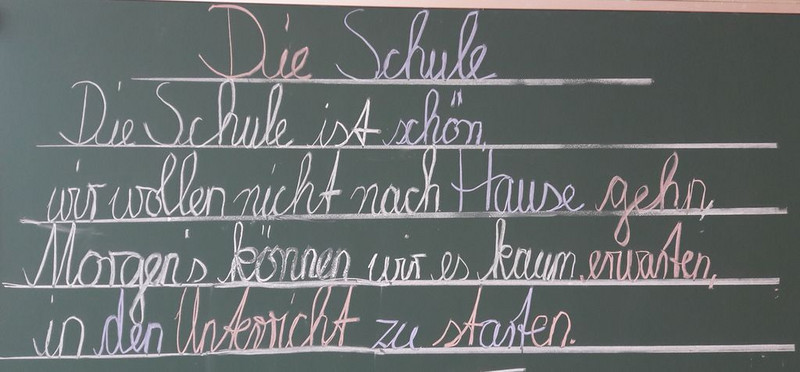 Die Schule
Die Schule ist schön,
wir wollen nicht nach Hause gehn,
Morgen's können wir es kaum erwarten,
in den Unterricht zu starten.